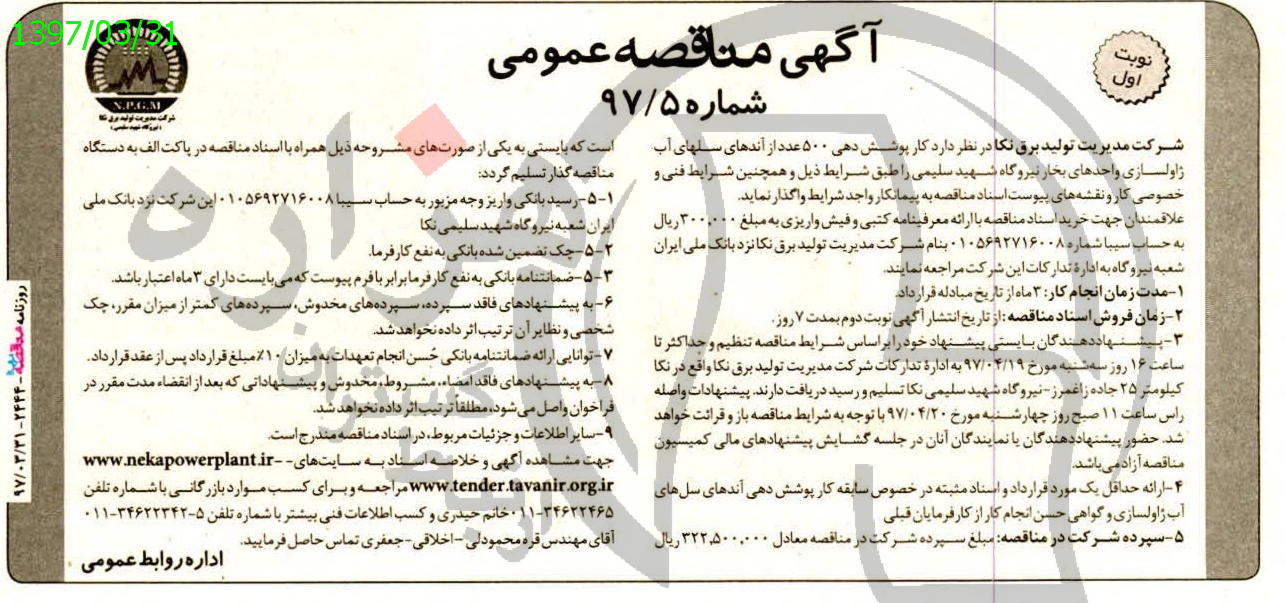 1397/03/31
نوبت
اول
آگهی مناقصه عمومی
شماره ۹۷/۵
N.P.G.M
شرکت مدیریت تولید برق نکا
(نیروگاه شهید سلیمی)
شرکت مدیریت تولید برق نکا در نظر دارد کار پوشش دهی ۵۰۰ عدد از آندهای سلهای آب
ژاولسازی واحدهای بخار نیروگاه شهید سلیمی را طبق شرایط ذیل و همچنین شرایط فنی و
خصوصی کار و نقشه‌های پیوست اسناد مناقصه به پیمانکار واجد شرایط واگذار نماید.
علاقمندان جهت خرید اسناد مناقصه با ارائه معرفینامه کتبی و فیش واریزی به مبلغ ۳۰۰,۰۰۰ ریال
به حساب سیبا شماره ۰۱۰۵۶۹۲۷۱۶۰۰۸ بنام شرکت مدیریت تولید برق نکا نزد بانک ملی ایران
شعبه نیروگاه به ادارهٔ تدارکات این شرکت مراجعه نمایند.
۱-مدت زمان انجام کار: ۳ ماه از تاریخ مبادله قرارداد.
۲-زمان فروش اسناد مناقصه: از تاریخ انتشار آگهی نوبت دوم بمدت ۷ روز.
۳-پیشنهاددهندگان بایستی پیشنهاد خود را براساس شرایط مناقصه تنظیم و حداکثر تا
ساعت ۱۶ روز سه‌شنبه مورخ ۹۷/۰۴/۱۹ به ادارهٔ تدارکات شرکت مدیریت تولید برق نکا واقع در نکا
کیلومتر ۲۵ جاده زاغمرز-نیروگاه شهید سلیمی نکا تسلیم و رسید دریافت دارند. پیشنهادات واصله
راس ساعت ۱۱ صبح روز چهارشنبه مورخ ۹۷/۰۴/۲۰ با توجه به شرایط مناقصه باز و قرائت خواهد
شد. حضور پیشنهاددهندگان یا نمایندگان آنان در جلسه گشایش پیشنهادهای مالی کمیسیون
مناقصه آزاد می‌باشد.
۴-ارائه حداقل یک مورد قرارداد و اسناد مثبته در خصوص سابقه کار پوشش دهی آندهای سل‌های
آب ژاولسازی و گواهی حسن انجام کار از کارفرمایان قبلی
۵-سپرده شرکت در مناقصه: مبلغ سپرده شرکت در مناقصه معادل ۳۲۲,۵۰۰,۰۰۰ ریال
است که بایستی به یکی از صورت‌های مشروحه ذیل همراه با اسناد مناقصه در پاکت الف به دستگاه
مناقصه گذار تسلیم گردد:
۵-۱-رسید بانکی واریز وجه مزبور به حساب سیبا ۰۱۰۵۶۹۲۷۱۶۰۰۸ این شرکت نزد بانک ملی
ایران شعبه نیروگاه شهید سلیمی نکا
۵-۲-چک تضمین شده بانکی به نفع کارفرما.
۵-۳-ضمانتنامه بانکی به نفع کارفرما برابر با فرم پیوست که می‌بایست دارای ۳ ماه اعتبار باشد.
۶-به پیشنهادهای فاقد سپرده، سپرده‌های مخدوش، سپرده‌های کمتر از میزان مقرر، چک
شخصی و نظایر آن ترتیب اثر داده نخواهد شد.
۷-توانایی ارائه ضمانتنامه بانکی حُسن انجام تعهدات به میزان ۱۰٪ مبلغ قرارداد پس از عقد قرارداد.
۸-به پیشنهادهای فاقد امضاء، مشروط، مخدوش و پیشنهاداتی که بعد از انقضاء مدت مقرر در
فراخوان واصل می‌شود، مطلقاً ترتیب اثر داده نخواهد شد.
۹-سایر اطلاعات و جزئیات مربوط، در اسناد مناقصه مندرج است.
جهت مشاهده آگهی و خلاصه اسناد به سایت‌های- -www.nekapowerplant.ir
www.tender.tavanir.org.ir مراجعه و برای کسب موارد بازرگانی با شماره تلفن
۰۱۱-۳۴۶۲۲۴۶۵ خانم حیدری و کسب اطلاعات فنی بیشتر با شماره تلفن ۵-۳۴۶۲۲۳۴۲-۰۱۱
آقای مهندس قره محمودلی-اخلاقی-جعفری تماس حاصل فرمایید.
اداره روابط عمومی
روزنامه مناقصه - ۲۴۴۴ - ۹۷/۰۳/۳۱
هزاره